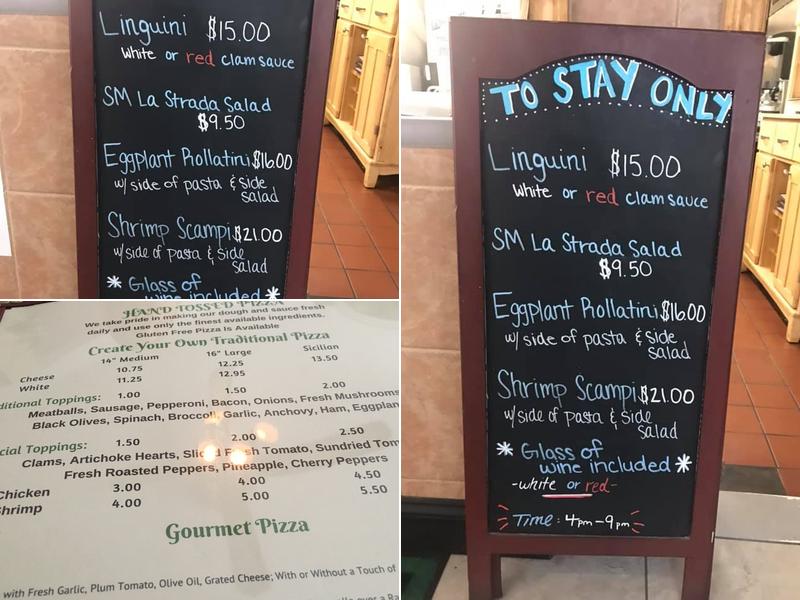 Linguini $15.00
White or red clam sauce
SM La Strada Salad
$9.50
Eggplant Rollatini $16.00
w/ side of pasta & side
salad
Shrimp Scampi $21.00
w/ side of pasta & side
salad
* Glass of
wine included *
HAND TOSSED PIZZA
We take pride in making our dough and sauce fresh
daily and use only the finest available ingredients.
Gluten Free Pizza Is Available
Create Your Own Traditional Pizza
14" Medium 16" Large Sicilian
Cheese 10.75 12.25 13.50
White 11.25 12.95
Toppings: 1.00 1.50 2.00
Meatballs, Sausage, Pepperoni, Bacon, Onions, Fresh Mushrooms
Black Olives, Spinach, Broccoli, Garlic, Anchovy, Ham,
Toppings: 1.50 2.00 2.50
Clams, Artichoke Hearts, Sliced Fresh Tomato, Sundried
Fresh Roasted Peppers, Pineapple, Cherry Peppers
Chicken 3.00 4.00 4.50
4.00 5.00 5.50
Gourmet Pizza
with Fresh Garlic, Plum Tomato, Olive Oil, Grated Cheese; With or Without a Touch of
TO STAY ONLY
Linguini $15.00
White or red clam sauce
SM La Strada Salad
$9.50
Eggplant Rollatini $16.00
w/ side of pasta & side
salad
Shrimp Scampi $21.00
w/ side of pasta & side
salad
* Glass of
wine included *
-white or red-
Time: 4pm-9pm